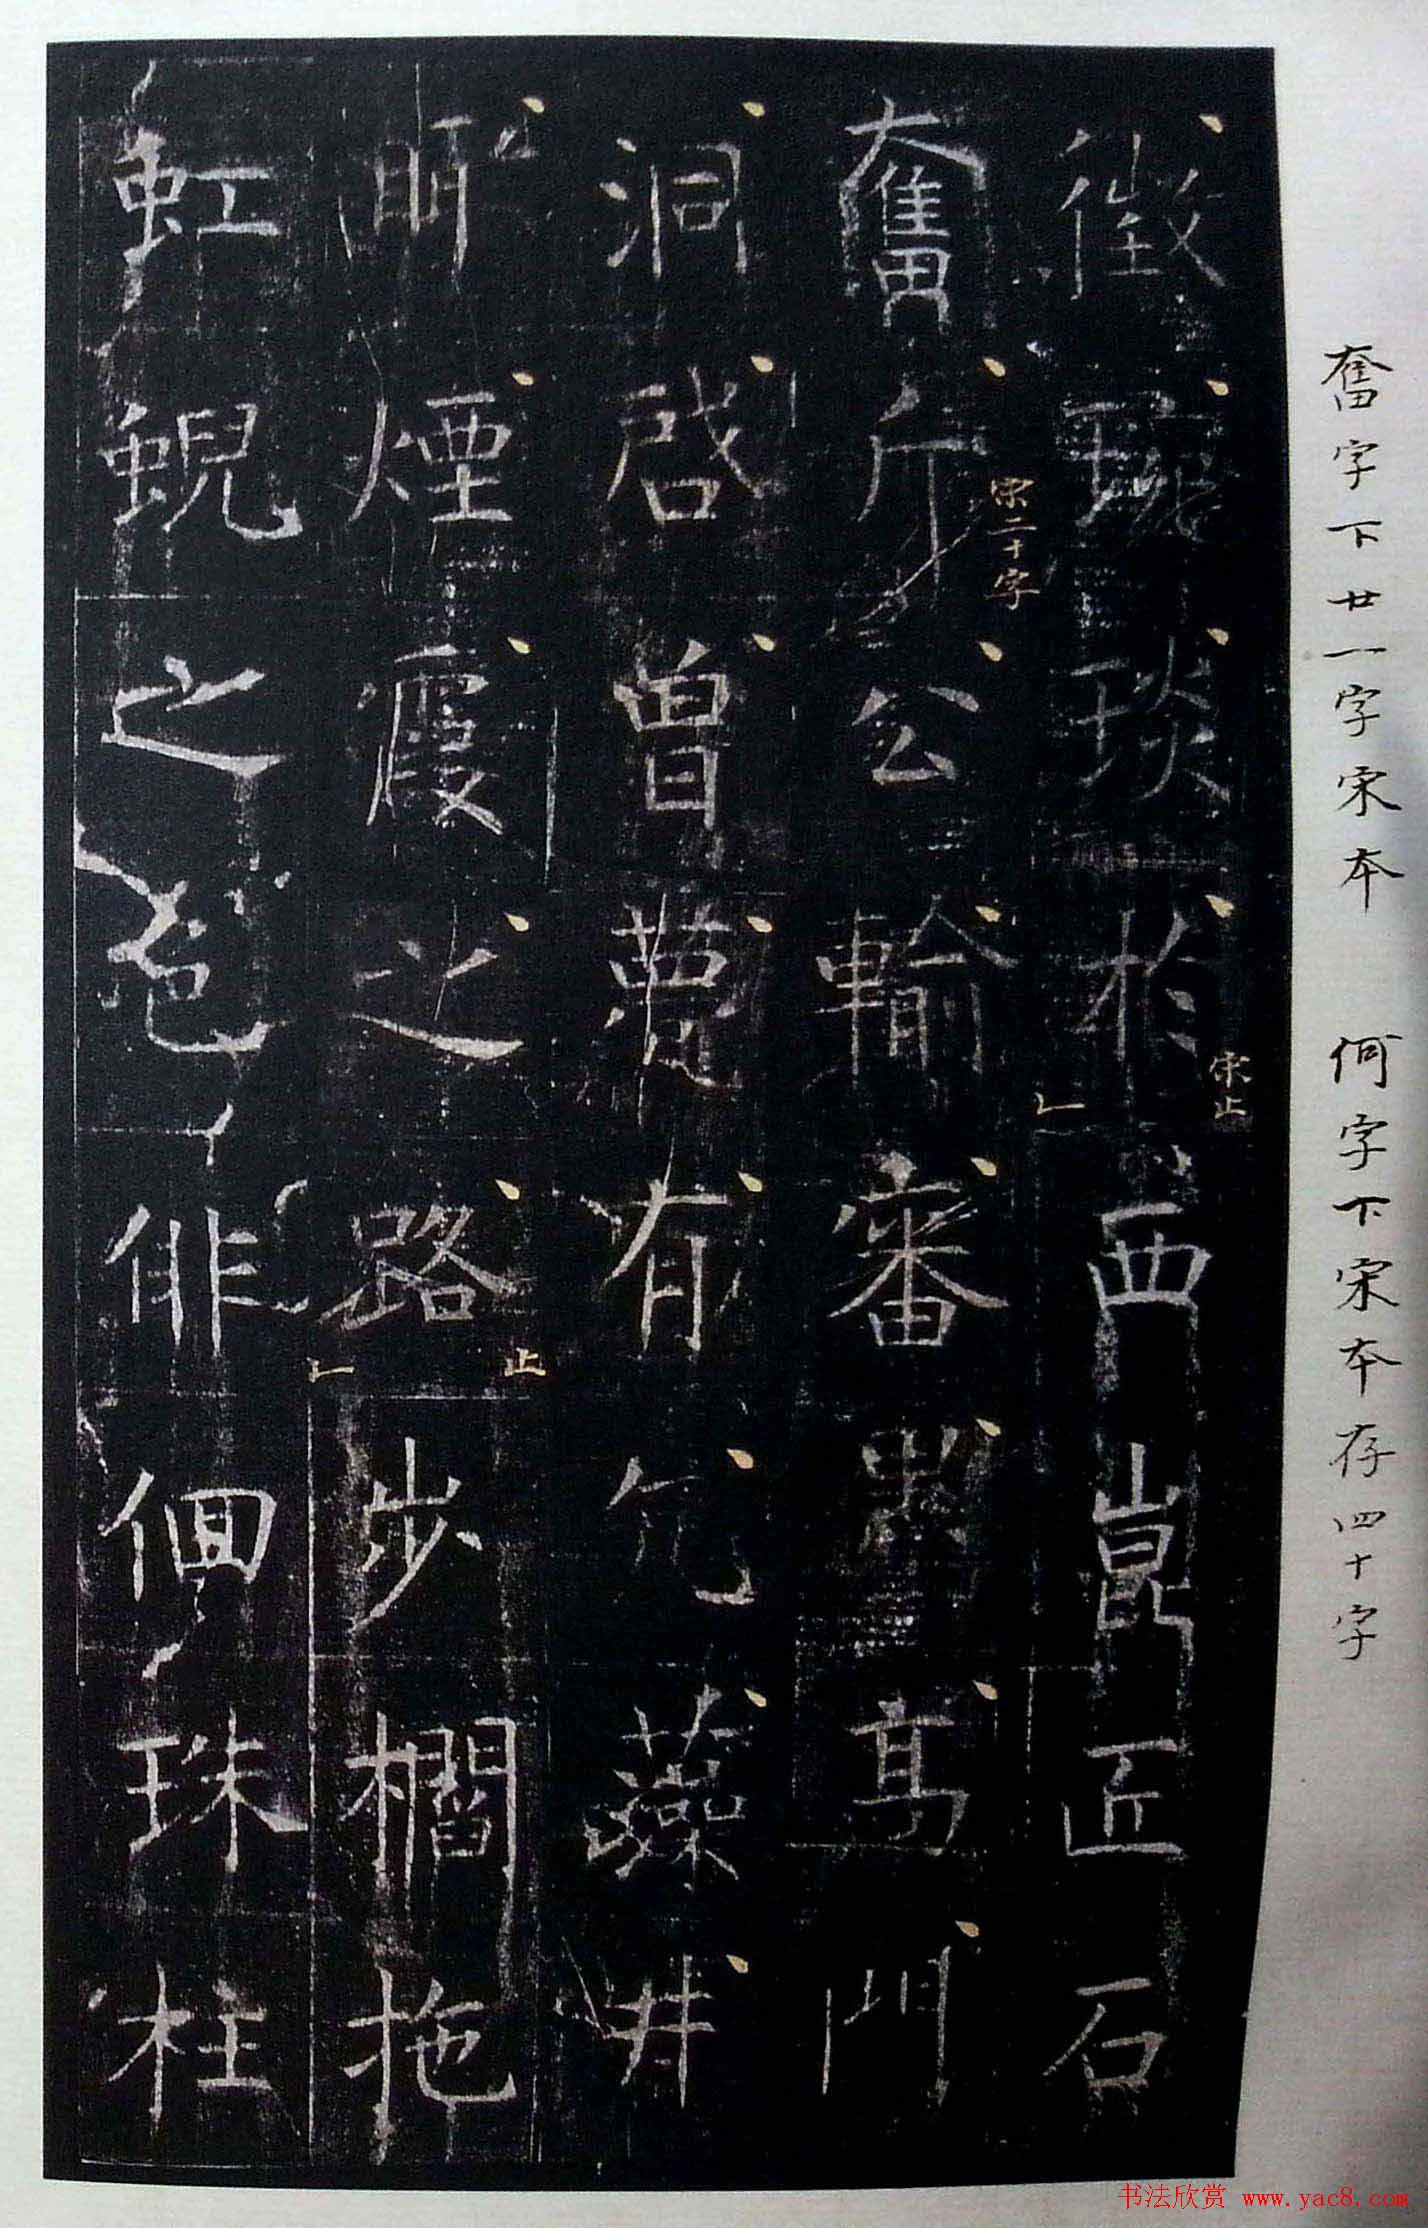 奮字下廿一字宋本　何字下宋本存四十字
徵琬琰於西崑匠石
宋止
奮斤公輸審墨高門
宋二十字
洞啓曾甍有仡藻井
昞煙霞之路步櫩拖
止
虹蜺之色俳佪珠柱
书法欣赏 www.yac8.com